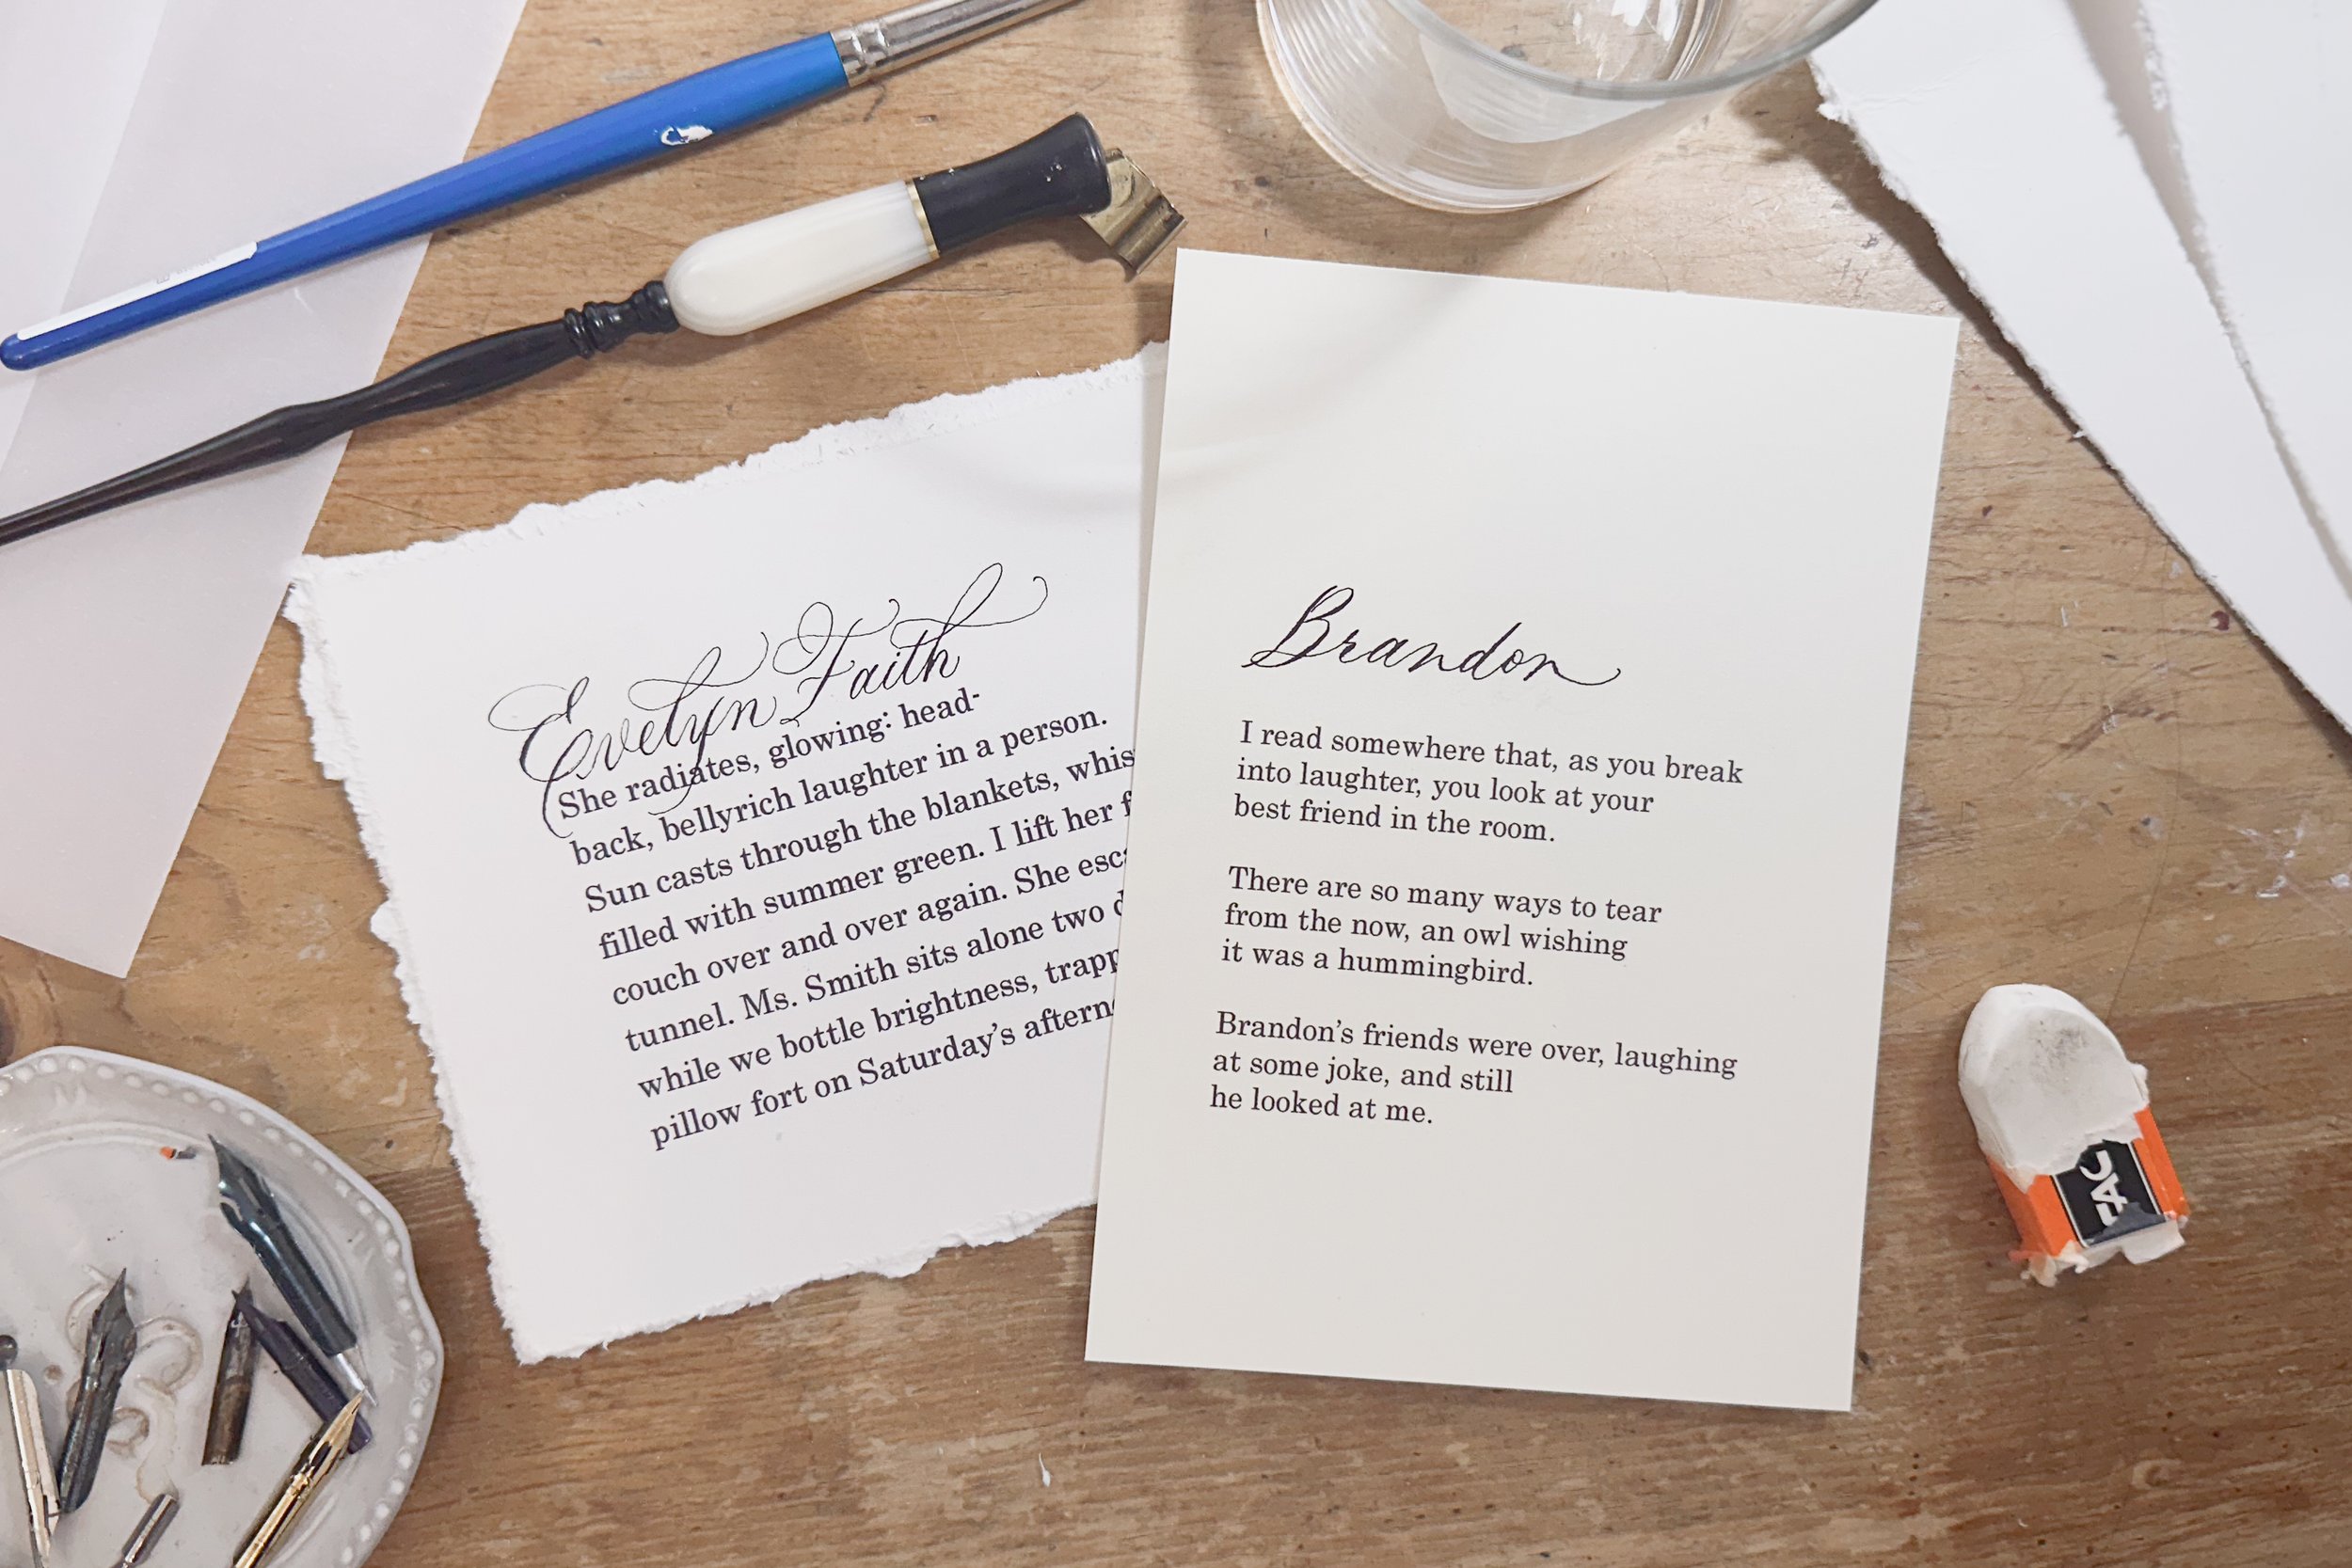 Evelyn Faith
She radiates, glowing: head-
back, bellyrich laughter in a person.
Sun casts through the blankets,
filled with summer green. I lift her
couch over and over again. She
tunnel. Ms. Smith sits alone two
while we bottle brightness,
pillow fort on Saturday's
Brandon
I read somewhere that, as you break
into laughter, you look at your
best friend in the room.
There are so many ways to tear
from the now, an owl wishing
it was a hummingbird.
Brandon's friends were over, laughing
at some joke, and still
he looked at me.